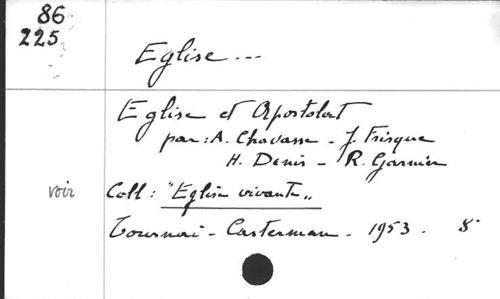 86
225
Eglise ...
Eglise et Apostolat
par : A. Chavasse - J. Frisque
H. Denis - R. Garnier
voir
Coll : "Eglise vivante"
Tournai - Casterman - 1953 . 8°